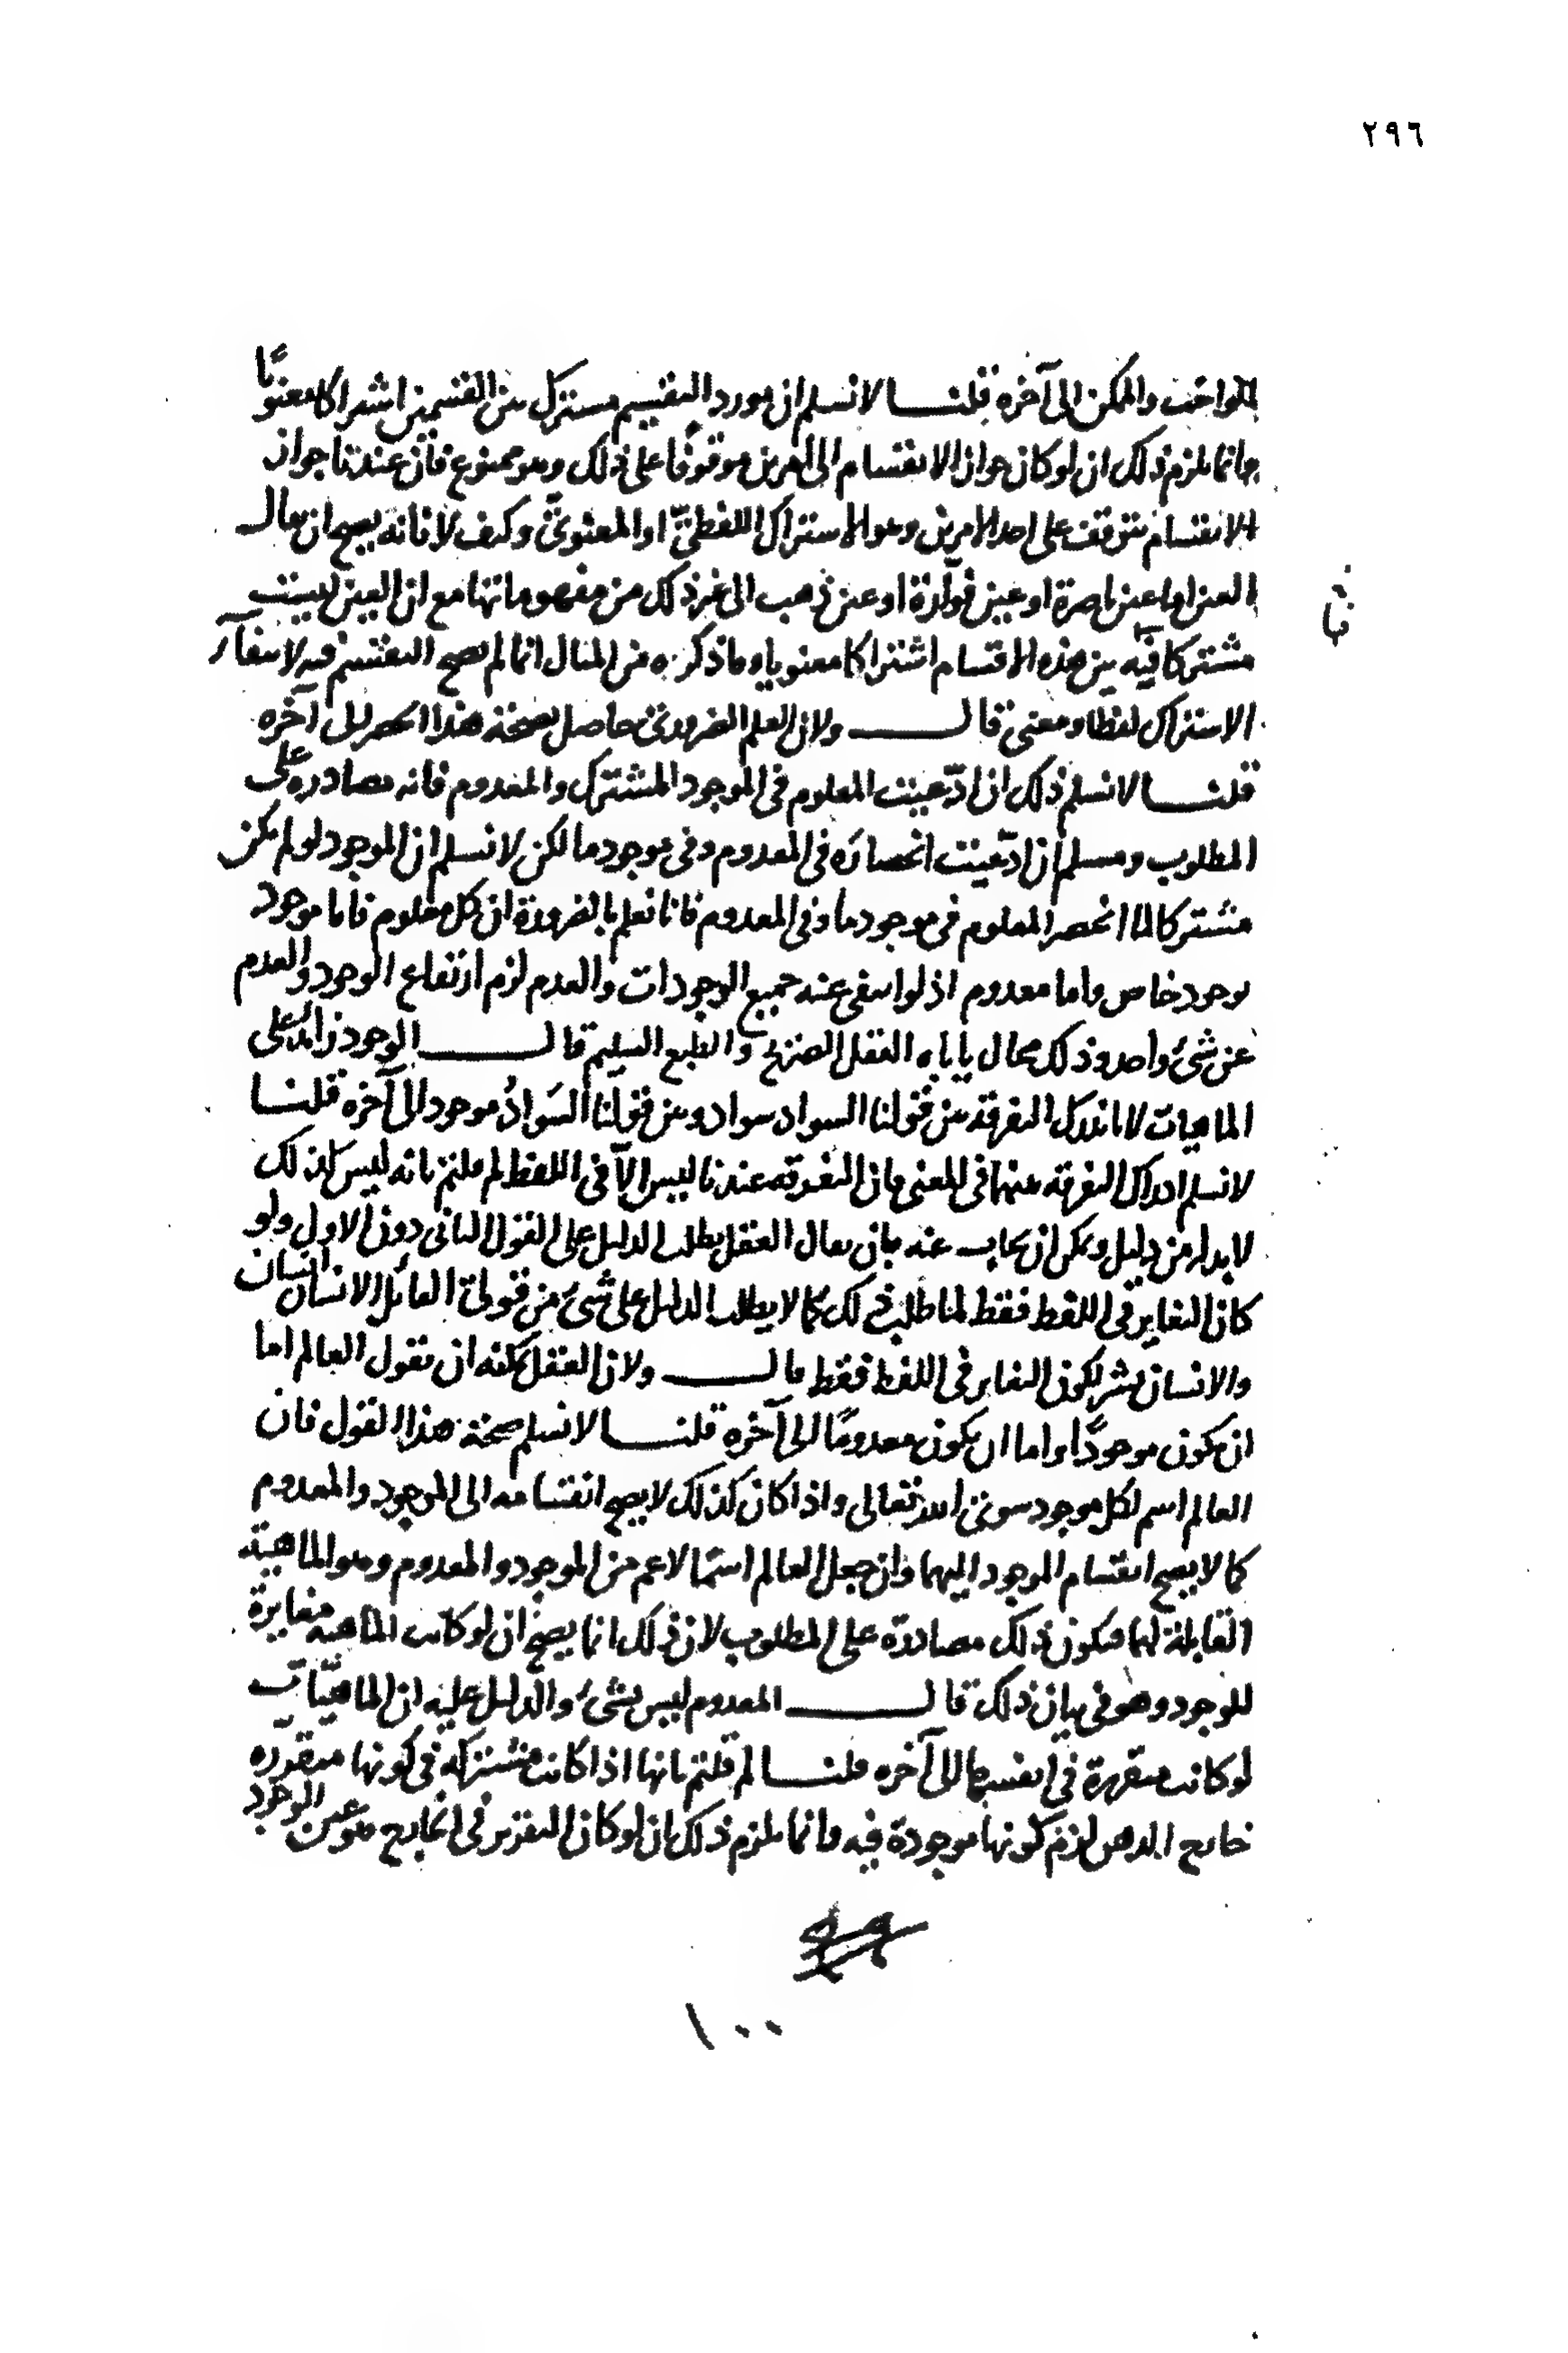 ٢٩٦
الواجب والممكن الى آخره قلنا لا نسلم ان مورد التقسيم مشترك بين القسمين اشتراكا معنويًا
وانما يلزم ذلك ان لو كان جواز الانقسام الى امرين موقوفًا على ذلك وهو ممنوع فان عندنا جواز
الانقسام يتوقف على احد الامرين وهو الاشتراك اللفظيّ او المعنويّ وكيف لا فانه يصح ان يقال
العين اما عين باصرة او عين فوّارة او عين ذهب الى غير ذلك من مفهوماتها مع ان العين ليست
مشتركا فيه بين هذه الاقسام اشتراكا معنويا وما ذكره من المثال انما لم يصح التقسيم فيه لانتفاء
الاشتراك لفظا ومعنى قال ولان العلم الضرورى حاصل بصحة هذا الحصر الى آخره
قلنا لا نسلم ذلك ان ادّعيت المعلوم فى الموجود المشترك والمعدوم فانه مصادرة على
المطلوب ومسلم ان ادّعيت انحصاره فى المعدوم وفى موجود ما لكن لا نسلم ان الموجود لو لم يكن
مشتركا لما انحصر المعلوم فى موجود ما وفى المعدوم فانا نعلم بالضرورة ان كل معلوم فاما موجود
بوجود خاص واما معدوم اذ لو انتفى عنه جميع الوجودات والعدم لزم ارتفاع الوجود والعدم
عن شئ واحد وذلك محال ياباه العقل الصريح والطبع السليم قال الوجود زائد على
الماهيات لانا ندرك التفرقة بين قولنا السواد سواد وبين قولنا السواد موجود الى آخره قلنا
لا نسلم ادراك التفرقة بينهما فى المعنى فان التفرقة عندنا ليس الّا فى اللفظ لم قلتم بانه ليس كذلك
لا بد له من دليل ويمكن ان يجاب عنه بان يقال العقل يطلب الدليل على القول الثانى دون الاول ولو
كان التغاير فى اللفظ فقط لما طلب ذلك كما لا يطلب الدليل على شئ من قولى القائل الانسان انسان
والانسان بشر لكون التغاير فى اللفظ فقط قال ولان العقل يمكنه ان يقول العالم اما
ان يكون موجودًا واما ان يكون معدومًا الى آخره قلنا لا نسلم صحة هذا القول فان
العالم اسم لكل موجود سوى الله تعالى واذا كان كذلك لا يصح انقسامه الى الموجود والمعدوم
كما لا يصح انقسام الموجود اليهما وان جعل العالم اسمًا لاعم من الموجود والمعدوم وهو الماهية
القابلة لهما فيكون ذلك مصادرة على المطلوب لان ذلك انما يصح ان لو كانت الماهية مغايرة
للوجود وهو فى بيان ذلك قال المعدوم ليس بشئ والدليل عليه ان الماهيّات
لو كانت متقررة فى انفسها الى آخره قلنا لم قلتم بانها اذا كانت مشتركة فى كونها متقررة
خارج الذهن لزم كونها موجودة فيه وانما يلزم ذلك ان لو كان التقرير فى الخارج هو عين الوجود
١٠٠